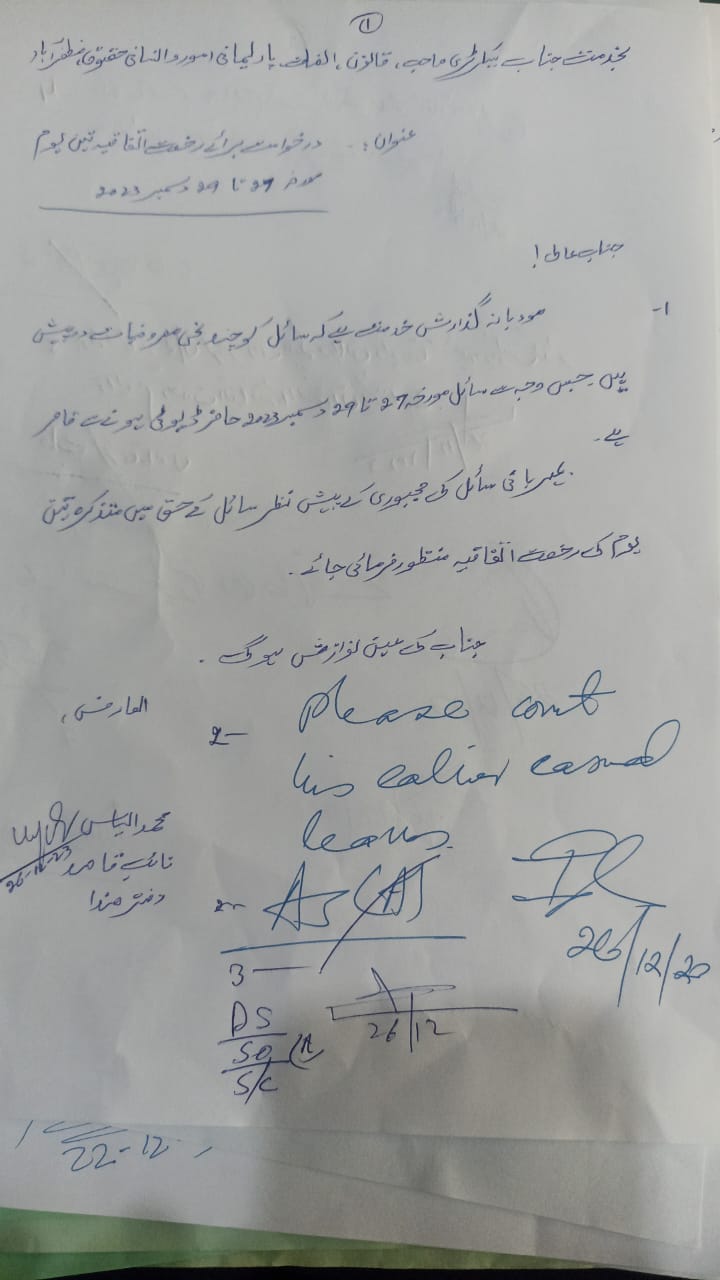 ①
بخدمت جناب سیکرٹری صاحب، قانون، انصاف، پارلیمانی امور و انسانی حقوق، مظفرآباد
عنوان:۔ درخواست برائے رخصت اتفاقیہ تین یوم
مورخہ 27 تا 29 دسمبر 2023
جناب عالی!
1- مودبانہ گذارش خدمت ہے کہ سائل کو چند نجی مصروفیات درپیش
ہیں۔ جس وجہ سے سائل مورخہ 27 تا 29 دسمبر 2023 حاضر ڈیوٹی ہونے سے قاصر
ہے۔
مہربانی سائل کی مجبوری کے پیش نظر سائل کے حق میں متذکرہ تین
یوم کی رخصت اتفاقیہ منظور فرمائی جائے۔
جناب کی عین نوازش ہوگی۔
العارض،
2- Please count
his earlier casual
leaves.
محمد الیاس
26-12-23
نائب قاصد
دفتر ھذا
2- AS (A)
26/12/23
3-
DS
26/12
SO (A)
S/C
22-12